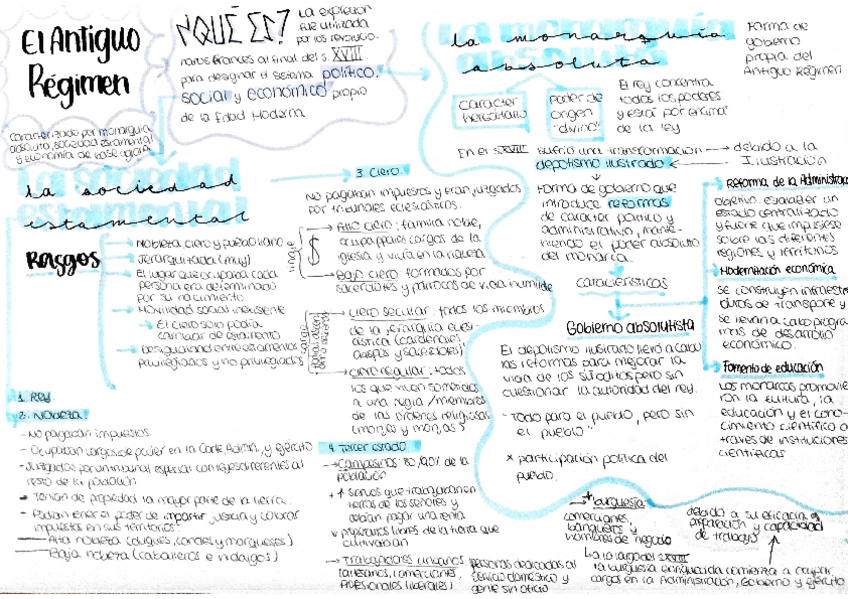 El Antiguo
Régimen
caracterizado por monarquía
absoluta, sociedad estamental
y economía de base agraria
¿QUÉ ES?
La expresión
fue utilizada
por los revolucio-
narios franceses al final del s. XVIII
para designar el sistema político,
social y económico propio
de la Edad Moderna
la monarquía
absoluta
Forma de
gobierno
propia del
Antiguo Régimen
carácter
hereditario
Poder de
origen
"divino"
El rey concentra
todos los poderes
y está por encima
de la ley
En el s. XVIII sufrió una transformación → debido a la
Ilustración
depotismo ilustrado
Forma de gobierno que
introduce reformas
de carácter político y
administrativo, mante-
niendo el poder absoluto
del monarca.
características
Gobierno absolutista
El depotismo ilustrado llevó a cabo
las reformas para mejorar la
vida de los súbditos pero sin
cuestionar la autoridad del rey.
- Todo para el pueblo, pero sin
el pueblo"
× participación política del
pueblo.
Reforma de la Administrac
objetivo: establecer un
estado centralizado
y fuerte que impusiese
sobre las diferentes
regiones y territorios
Modernización económica
se construyen infraestr
de transporte y
se llevan a cabo progra
mas de desarrollo
económico.
Fomento de educación
Los monarcas promovie
ron la cultura, la
educación y el cono-
cimiento científico a
través de instituciones
científicas
la sociedad
estamental
Rasgos
Nobleza, clero y pueblo llano
Jerarquizada (muy)
El lugar que ocupaba cada
persona era determinado
por su nacimiento
Movilidad social inexistente
El clero solo podía
cambiar de estamento
Desigualdad entre estamentos
privilegiados y no privilegiados
1. Rey
2. Nobleza
- No pagaban impuestos
- Ocupaban cargos de poder en la Corte, Admin, y ejército
- Juzgados por un tribunal especial con leyes diferentes al
resto de la población
Tenían de propiedad la mayor parte de la tierra.
- Podían tener el poder de impartir justicia y cobrar
impuestos en sus territorios
Alta nobleza (duques, condes y marqueses)
Baja nobleza (caballeros e hidalgos)
3. Clero
No pagaban impuestos y eran juzgados
por tribunales eclesiásticos.
linaje
$
Alto clero: familia noble,
ocupa ppales cargos de la
iglesia y vivía en la riqueza
Bajo clero: formados por
sacerdotes y párrocos de vida humilde
clero secular: todos los miembros
de la jerarquía ecle-
siástica (cardenales,
obispos y sacerdotes)
clero regular: todos
los que viven sometidos
a una regla / miembros
de las órdenes religiosas
(monjes y monjas)
4. Tercer estado
→ Campesinos: 80/90% de la
población
+ siervos que trabajaban en
tierras de los señores y
debían pagar una renta
propietarios libres de la tierra que
cultivaban
→ Trabajadores urbanos
(artesanos, comerciantes,
profesionales liberales)
personas dedicadas al
servicio doméstico y
gente sin oficio
+ burguesía
comerciantes,
banqueros y
hombres de negocio
debido a su eficacia,
preparación y capacidad
de trabajo
A lo largo del s. XVIII
la burguesía enriquecida comienza a ocupar
cargos en la Administración, Gobierno y ejército